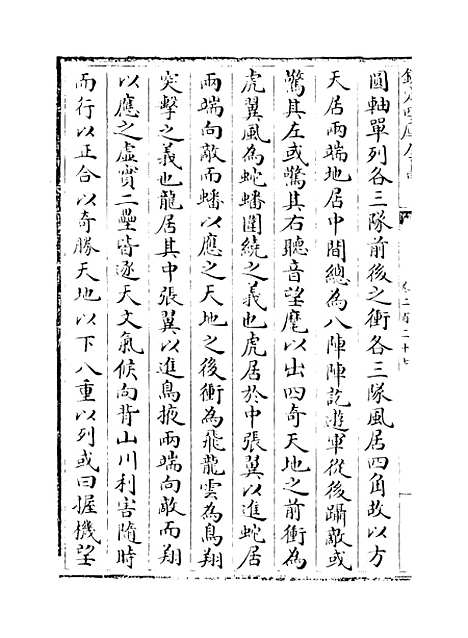 欽定四庫全書
卷二百二十七
圓軸單列各三隊前後之衝各三隊風居四角故以方
天居兩端地居中間總為八陣陣訖遊軍從後躡敵或
驚其左或驚其右聽音望麾以出四奇天地之前衝為
虎翼風為蛇蟠圍繞之義也虎居於中張翼以進蛇居
兩端向敵而蟠以應之天地之後衝為飛龍雲為鳥翔
突擊之義也龍居其中張翼以進鳥掖兩端向敵而翔
以應之虛實二壘皆逐天文氣候向背山川利害隨時
而行以正合以奇勝天地以下八重以列或曰握機望